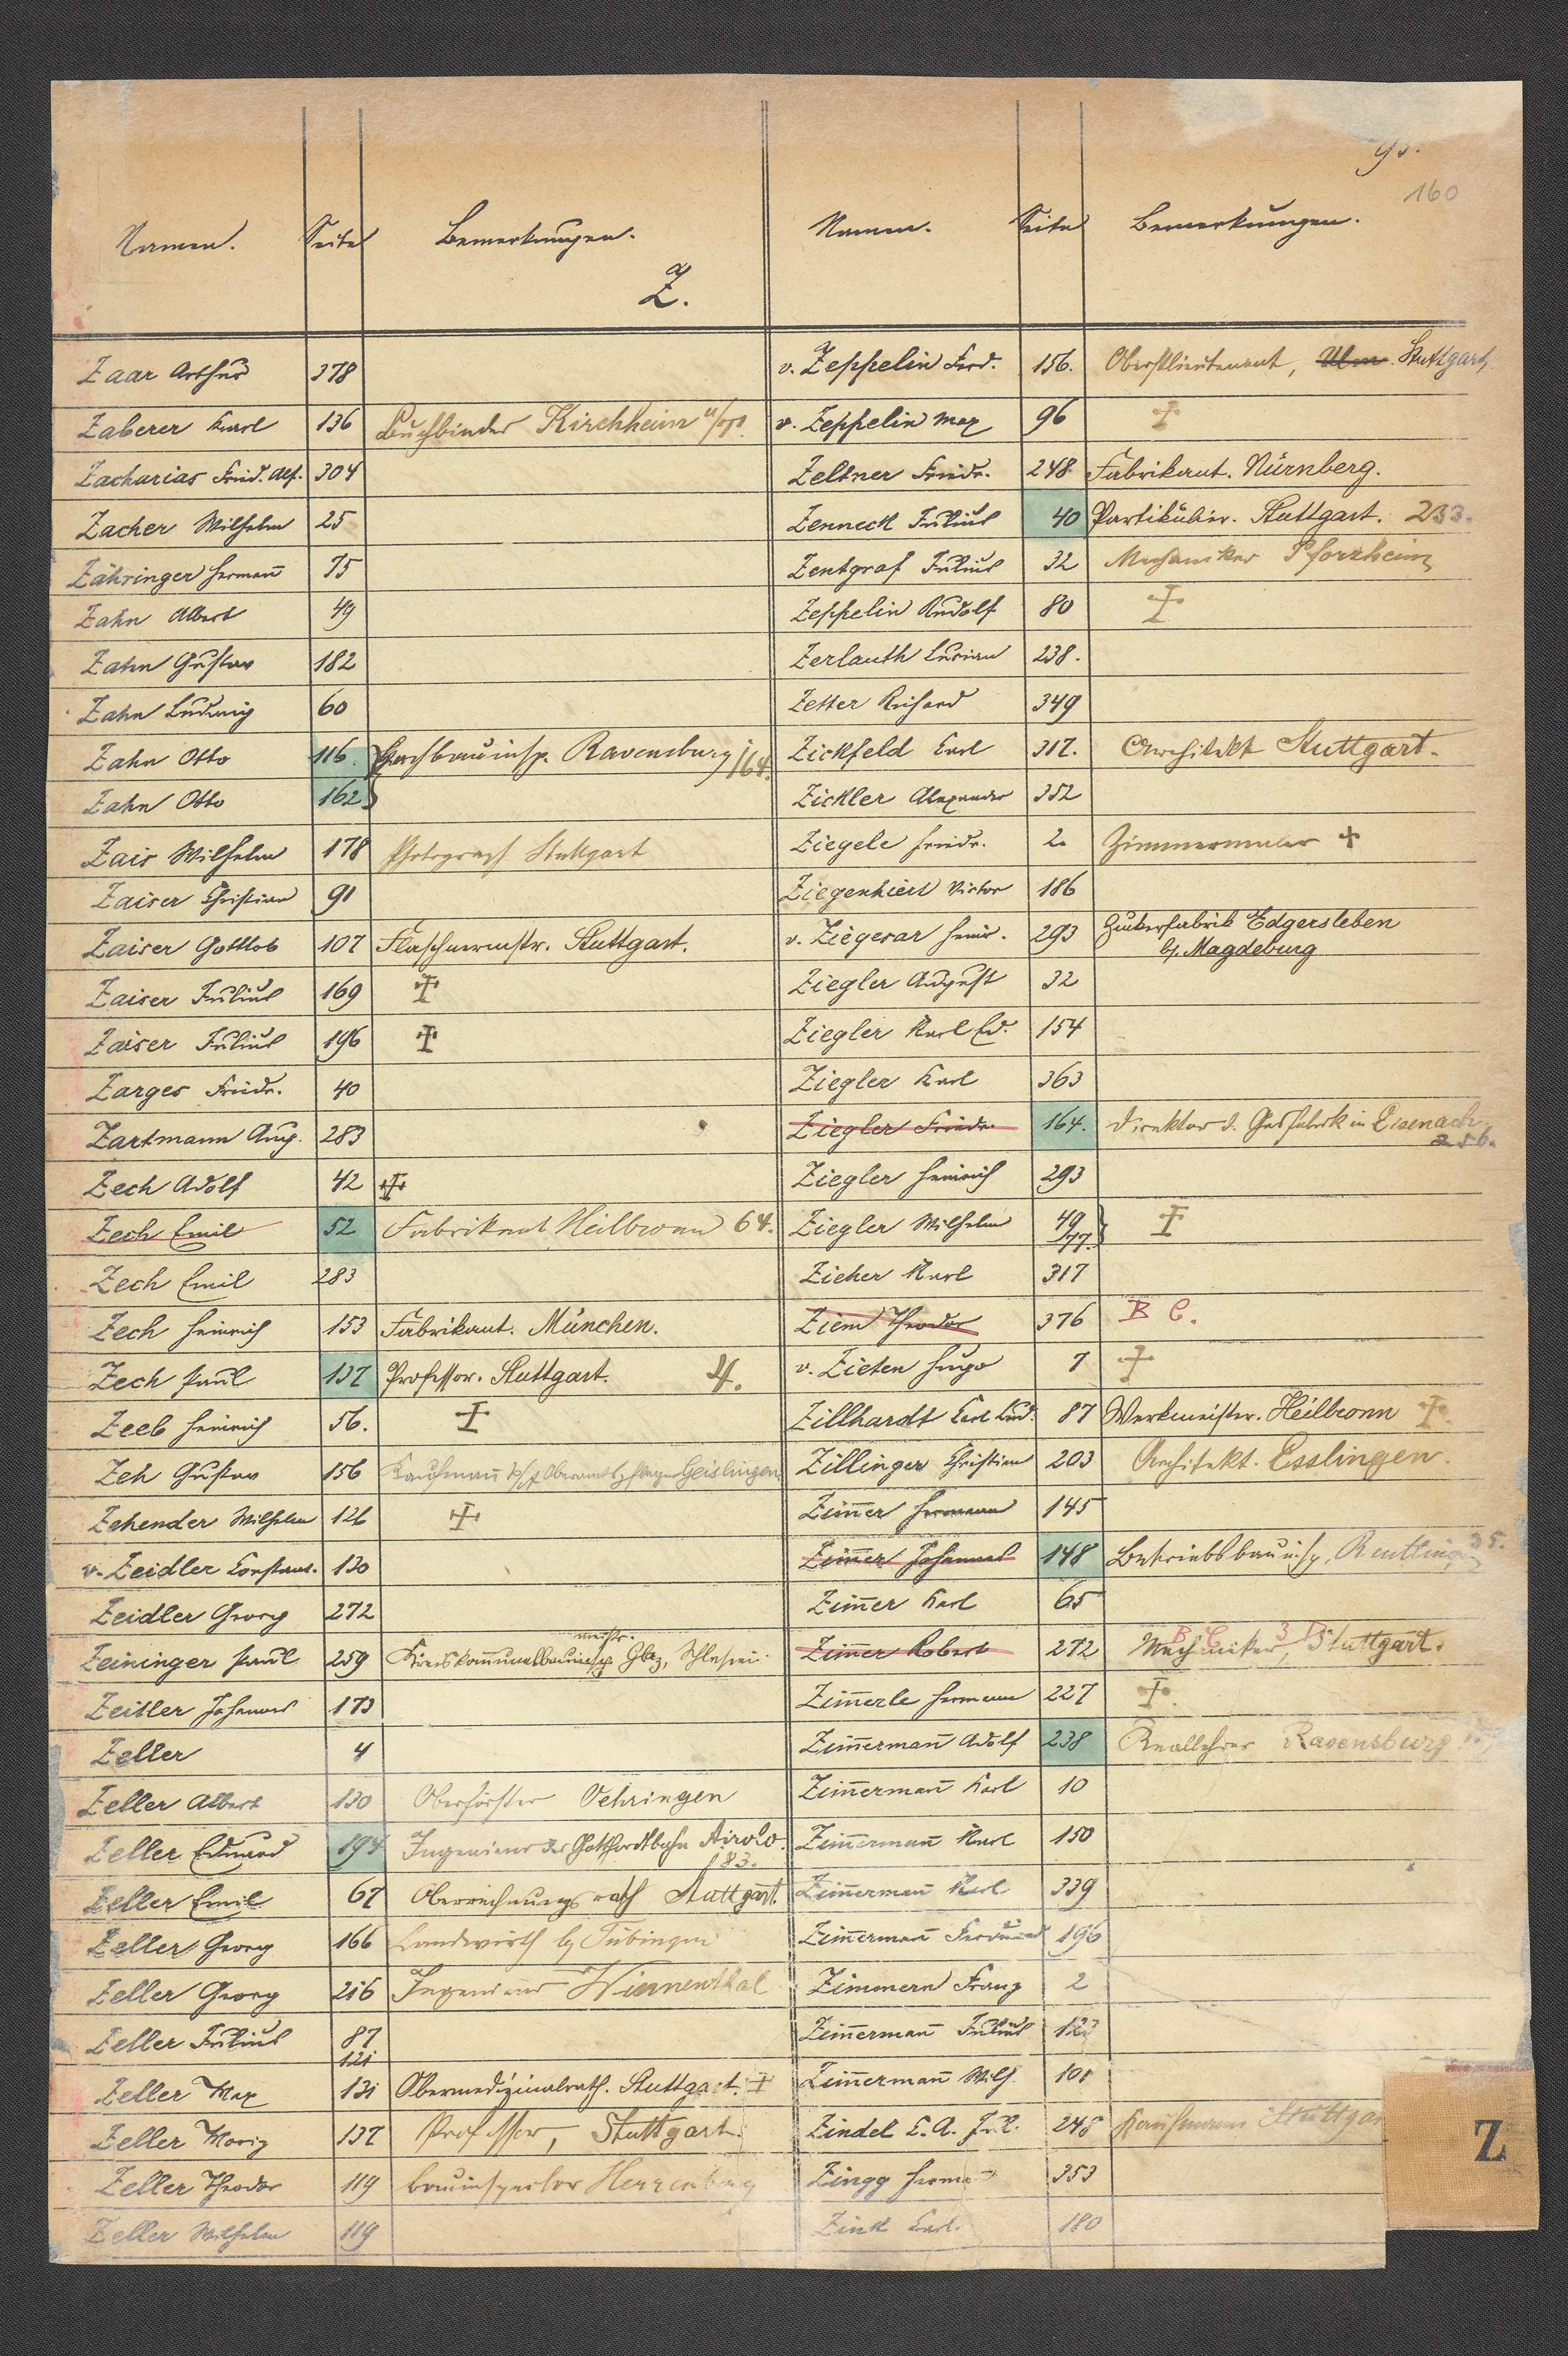 95.
160
Namen. Seite Bemerkungen.
Z.
Zaar Arthur 378
Zaberer Karl 136 Buchbinder Kirchheim u/T.
Zacharias Fried. Alf. 304
Zacher Wilhelm 25
Zähringer Hermañ 75
Zahn Albert 49
Zahn Gustav 182
Zahn Ludwig 60
Zahn Otto 116. Hochbauinsp. Ravensburg 164.
Zahn Otto 162
Zais Wilhelm 178 Photograph Stuttgart
Zaiser Christian 91
Zaiser Gottlob 107 Flaschnermstr. Stuttgart.
Zaiser Julius 169 ☩
Zaiser Julius 196 ☩
Zarges Friedr. 40
Zartmann Aug. 283
Zech Adolf 42 ☩
Zech Emil 52 Fabrikant Heilbronn 64.
Zech Emil 283
Zech Heinrich 153 Fabrikant. München.
Zech Paul 137 Professor. Stuttgart. 4.
Zeeb Heinrich 56. ☩
Zeh Gustav 156 Kaufmañ Geislingen
Zehender Wilhelm 126 ☩
v. Zeidler Constant. 130
Zeidler Georg 272
meistr.
Zeininger Paul 259 Kreiskom̃unalbauinsp. Glaz, Schlesien.
Zeitler Johannes 173
Zeller 4
Zeller Albert 130 Oberförster Oehringen
Zeller Eduard 194 Ingenieur der Gotthardbahn Airolo.
183.
Zeller Emil 67 Oberrechnungsrath Stuttgart.
Zeller Georg 166 Landwirth b/ Tübingen
Zeller Georg 216 Ingenieur
Zeller Julius 87
121
Zeller Max 131 Obermedizinalrath. Stuttgart. ☩
Zeller Moriz 137 Professor, Stuttgart.
Zeller Theodor 119 Bauinspector Herrenberg
Zeller Wilhelm 119
Namen. Seite Bemerkungen.
v. Zeppelin Ferd. 156. Oberstlieutenant, Ulm. Stuttgart,
v. Zeppelin Max 96 ☩
Zeltner Friedr. 248 Fabrikant. Nürnberg.
Zenneck Julius 40 Partikulier. Stuttgart. 233.
Zentgraf Julius 32 Mechaniker Pforzheim
Zeppelin Rudolf 80 ☩
Zerlauth Lucian 238.
Zetter Richard 349
Zickfeld Carl 317. Architekt Stuttgart.
Zickler Alexander 352
Ziegele Friedr. 2. Zimmermaler ☩
Ziegenhiert Victor 186
v. Ziegesar Heinr. 293 Zukerfabrik Edgersleben
b/. Magdeburg
Ziegler August 32
Ziegler Karl Ed. 154
Ziegler Karl 363
Ziegler Friedr. 164. Direktor d. Gasfabrik in Eisenach,
256.
Ziegler Heinrich 293
Ziegler Wilhelm 49 ☩
77.
Zieher Karl 317
Ziem Theodor 376 B C.
v. Zieten Hugo 7 ☩
Zillhardt Carl Lud. 87 Werkmeister. Heilbronn ☩.
Zillinger Christian 203 Architekt. Esslingen.
Zim̃er Hermann 145
Zim̃er Johannes 148 Betriebsbauinsp. Reutlingen 35.
Zim̃er Karl 65
B C 3 D
Zim̃er Robert 272 Mechaniker, Stuttgart.
Zim̃erle Hermann 227 ☩.
Zim̃ermañ Adolf 238 Reallehrer Ravensburg
Zim̃ermañ Karl 10
Zim̃ermañ Karl 150
Zim̃ermañ Karl 339
Zim̃ermañ Ferdinand 196
Zimmern Franz 2
Zim̃ermañ Julius
Zim̃ermañ Wilh. 101
Zindel C. A. 248 Kaufmann Stuttgar
Zingg Herma 353
Zink Carl. 180
Z